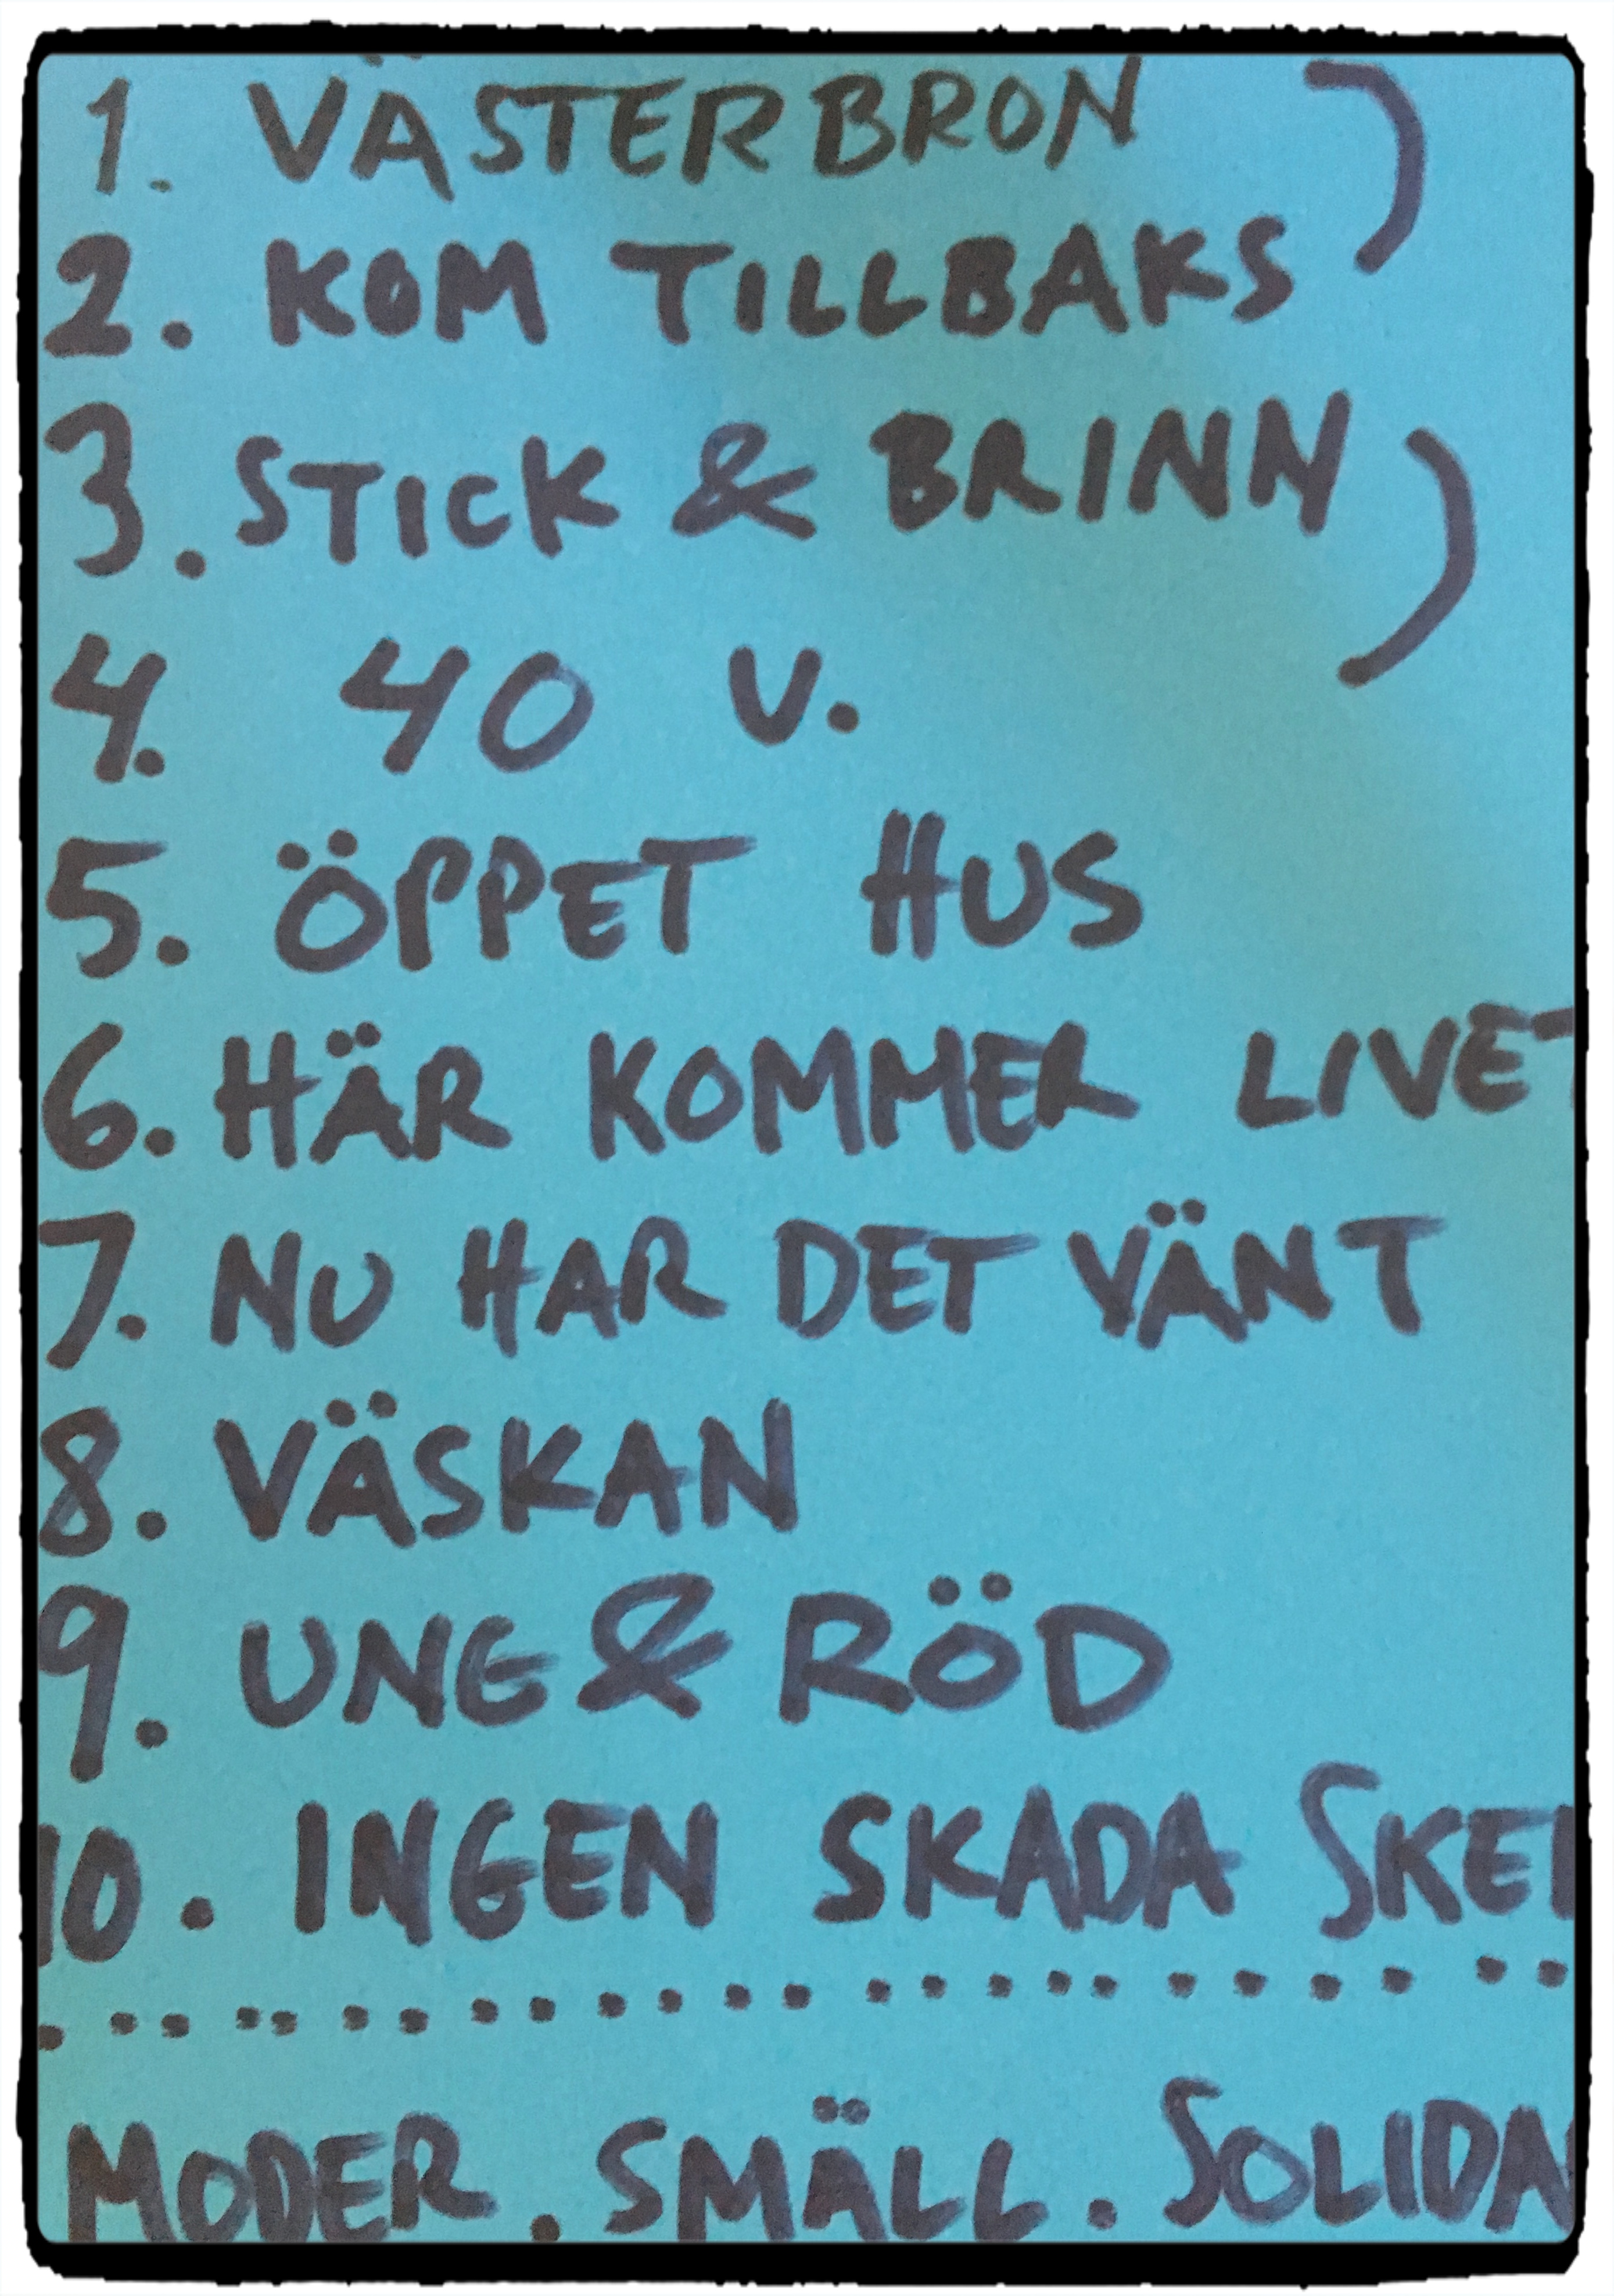 1. VÄSTERBRON
2. KOM TILLBAKS
3. STICK & BRINN
4. 40 V.
5. ÖPPET HUS
6. HÄR KOMMER LIVET
7. NU HAR DET VÄNT
8. VÄSKAN
9. UNG & RÖD
10. INGEN SKADA SKE
MODER. SMÄLL. SOLIDA